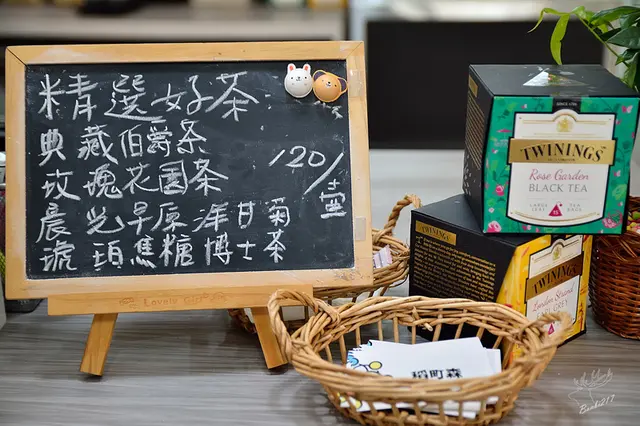 精選好茶
典藏伯爵茶
玫瑰花園茶
晨光草原洋甘菊
琥珀焦糖博士茶
120/壺
Lovely
TWININGS
Rose Garden
BLACK TEA
LARGE LEAF
TEA BAGS
15
TWININGS
London Strand
EARL GREY
稻町森